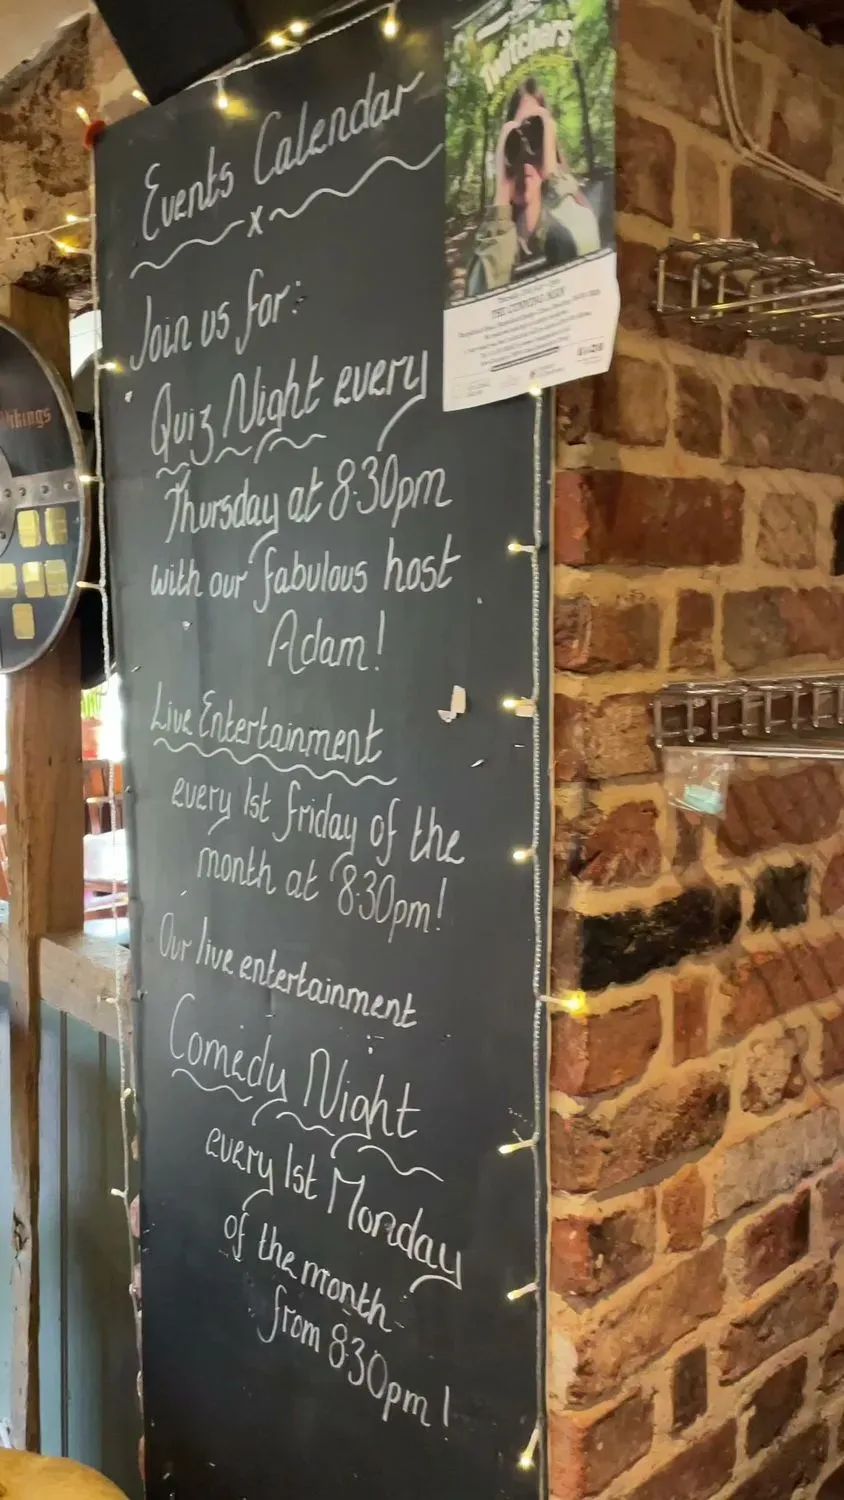 Events Calendar
x
Join us for:
Quiz Night every
Thursday at 8.30pm
with our fabulous host
Adam!
Live Entertainment
every 1st friday of the
month at 8.30pm!
Our live entertainment
Comedy Night
every 1st Monday
of the month
from 8.30pm!
Twitchers
THE CUNNING MAN
Vikings